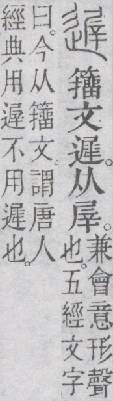 遟籒文遲。从屖。
兼會意形聲
也。五經文字
曰。今从籒文。謂唐人
經典用遟不用遲也。